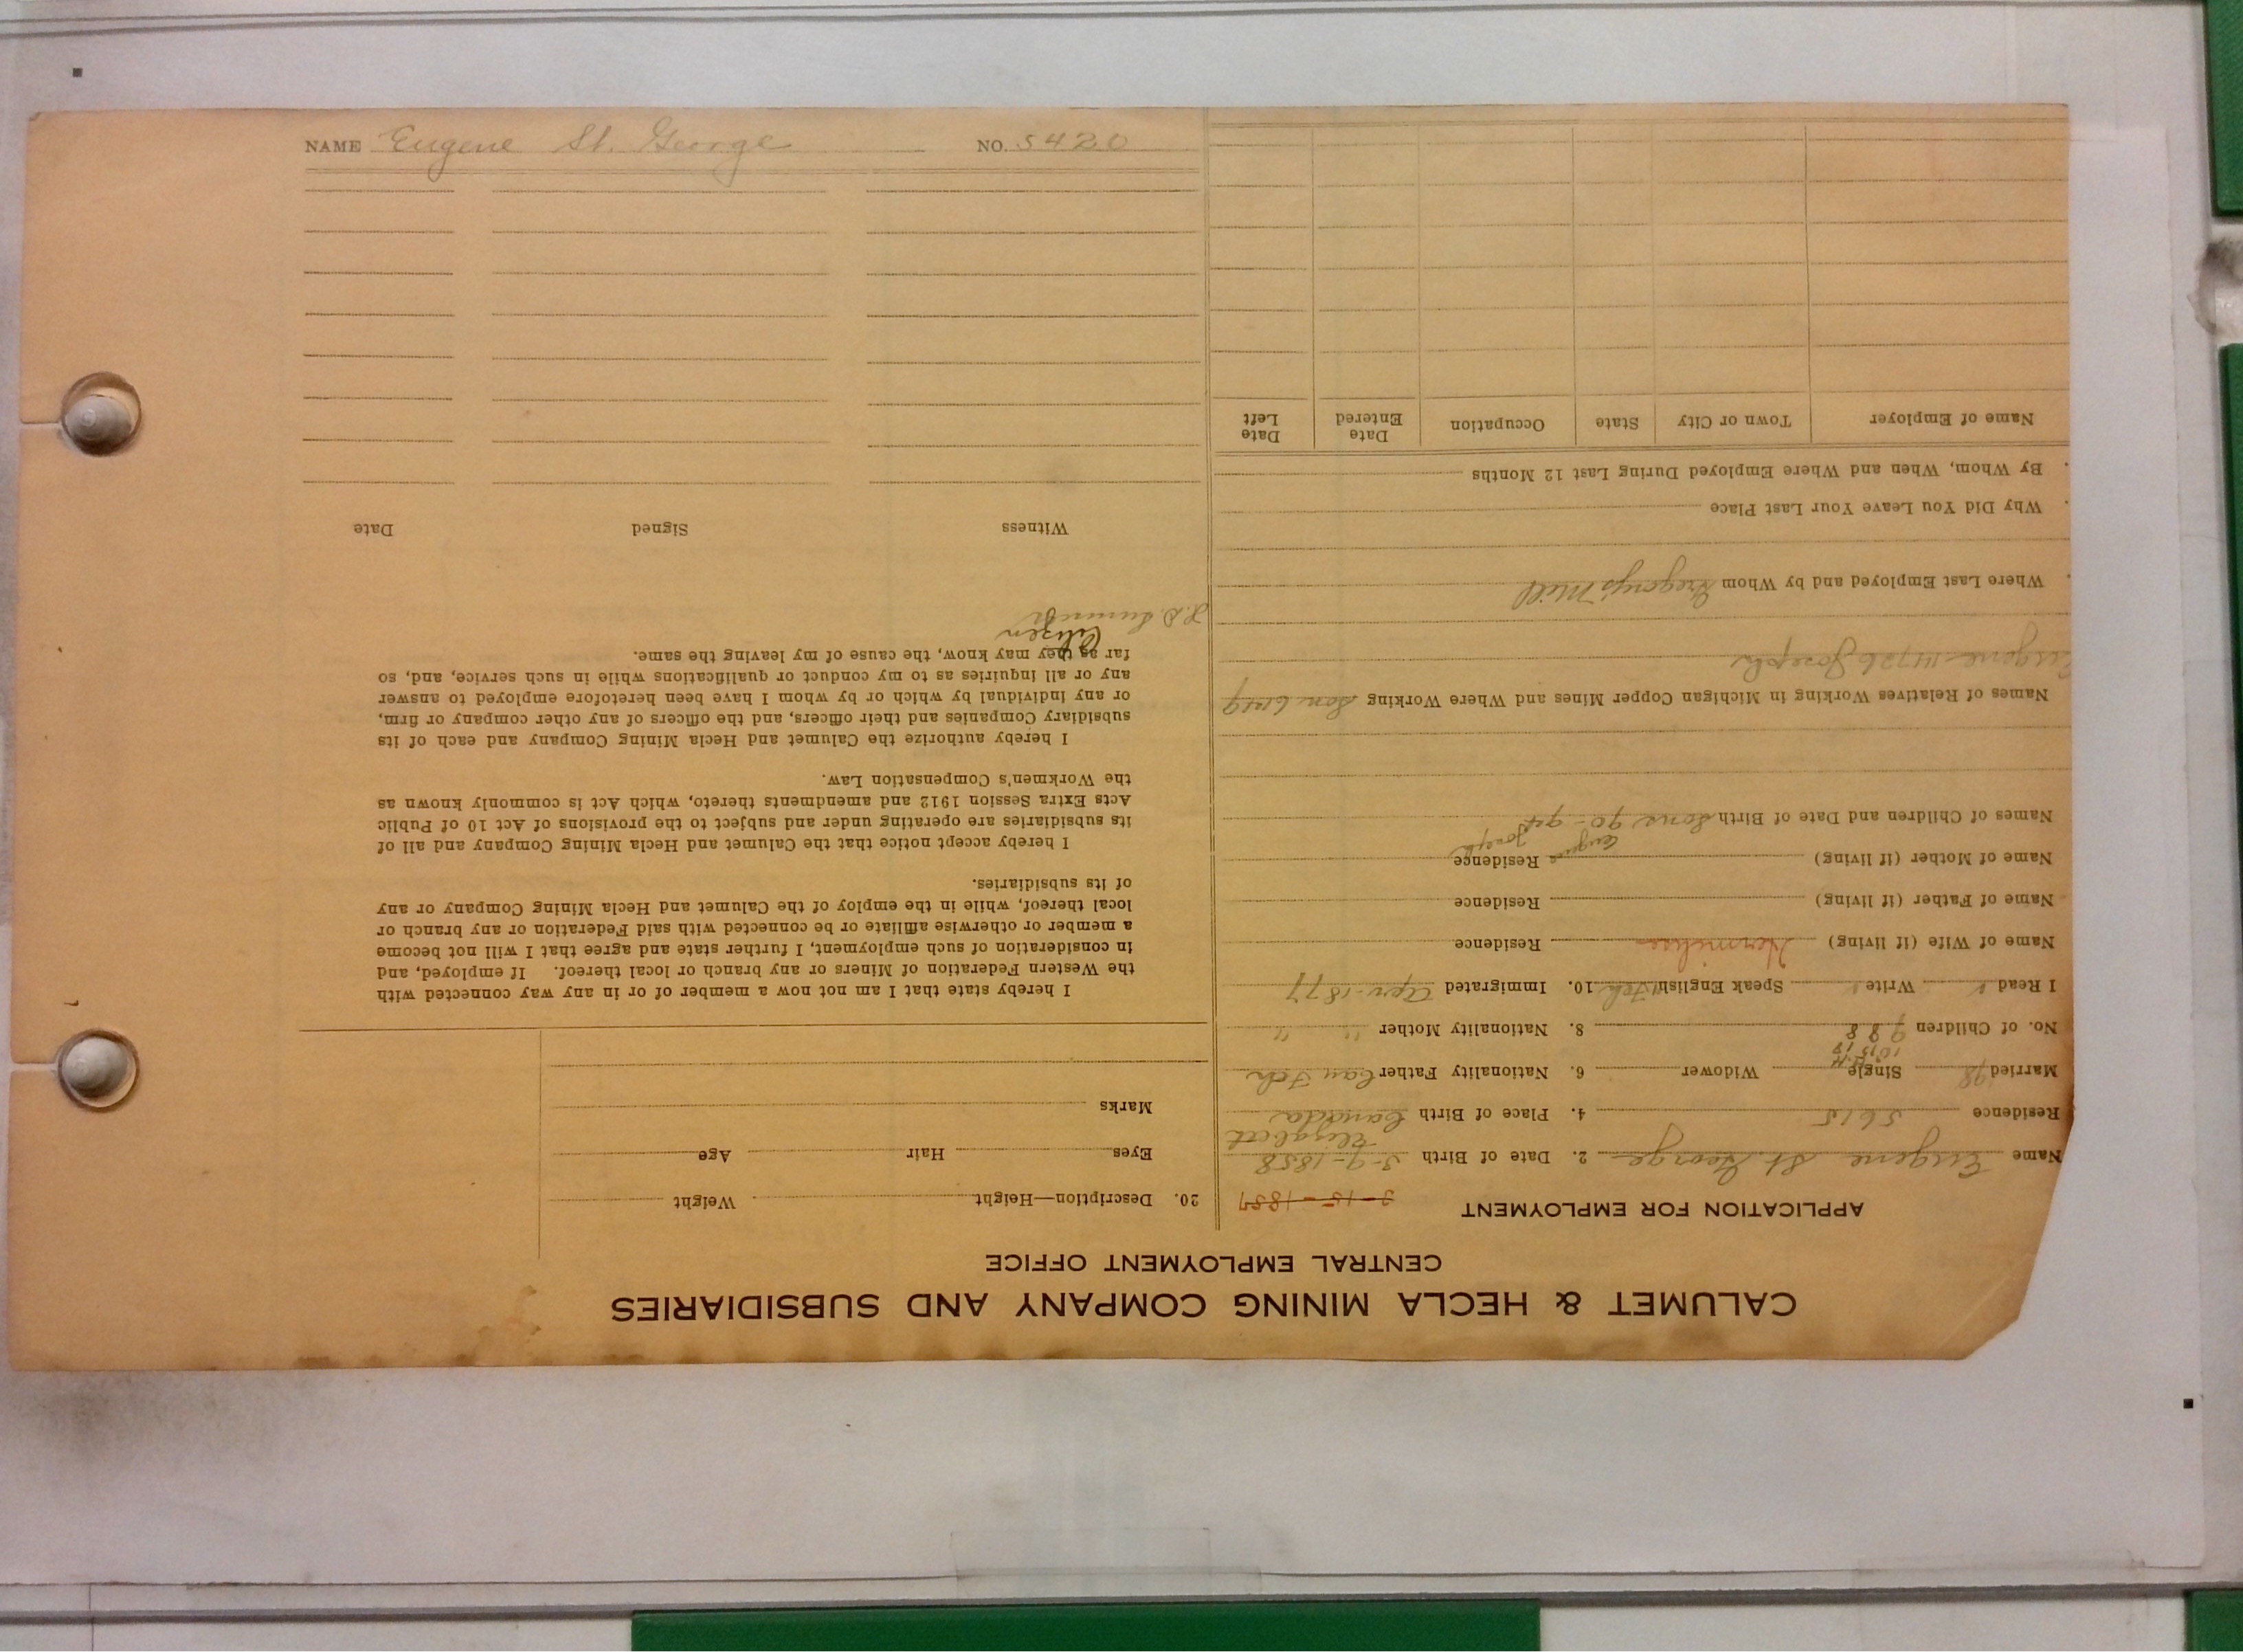 CALUMET & HECLA MINING COMPANY AND SUBSIDIARIES
CENTRAL EMPLOYMENT OFFICE
APPLICATION FOR EMPLOYMENT
3-15-1857
Name Eugene St. George 2. Date of Birth 3-9-1858
Residence 5615 4. Place of Birth Canada
Married 98 Single Widower 6. Nationality Father Can Fch
No. of Children 9 8 8 8. Nationality Mother " "
I Read Write Speak English Fch 10. Immigrated Apr. 1877
Name of Wife (if living) Residence
Name of Father (if living) Residence
Name of Mother (if living) Residence
Eugene Joseph
Names of Children and Date of Birth Sons 90 -
Names of Relatives Working in Michigan Copper Mines and Where Working Son
Eugene Joseph
Where Last Employed and by Whom Gregory's Mill
Why Did You Leave Your Last Place
By Whom, When and Where Employed During Last 12 Months
Name of Employer Town or City State Occupation Date Entered Date Left
20. Description—Height Weight
Eyes Hair Age
Marks
I hereby state that I am not now a member of or in any way connected with
the Western Federation of Miners or any branch or local thereof. If employed, and
in consideration of such employment, I further state and agree that I will not become
a member or otherwise affiliate or be connected with said Federation or any branch or
local thereof, while in the employ of the Calumet and Hecla Mining Company or any
of its subsidiaries.
I hereby accept notice that the Calumet and Hecla Mining Company and all of
its subsidiaries are operating under and subject to the provisions of Act 10 of Public
Acts Extra Session 1912 and amendments thereto, which Act is commonly known as
the Workmen's Compensation Law.
I hereby authorize the Calumet and Hecla Mining Company and each of its
subsidiary Companies and their officers, and the officers of any other company or firm,
or any individual by which or by whom I have been heretofore employed to answer
any or all inquiries as to my conduct or qualifications while in such service, and, so
far as they may know, the cause of my leaving the same.
Citizen
Witness Signed Date
NAME Eugene St. George NO. 5420